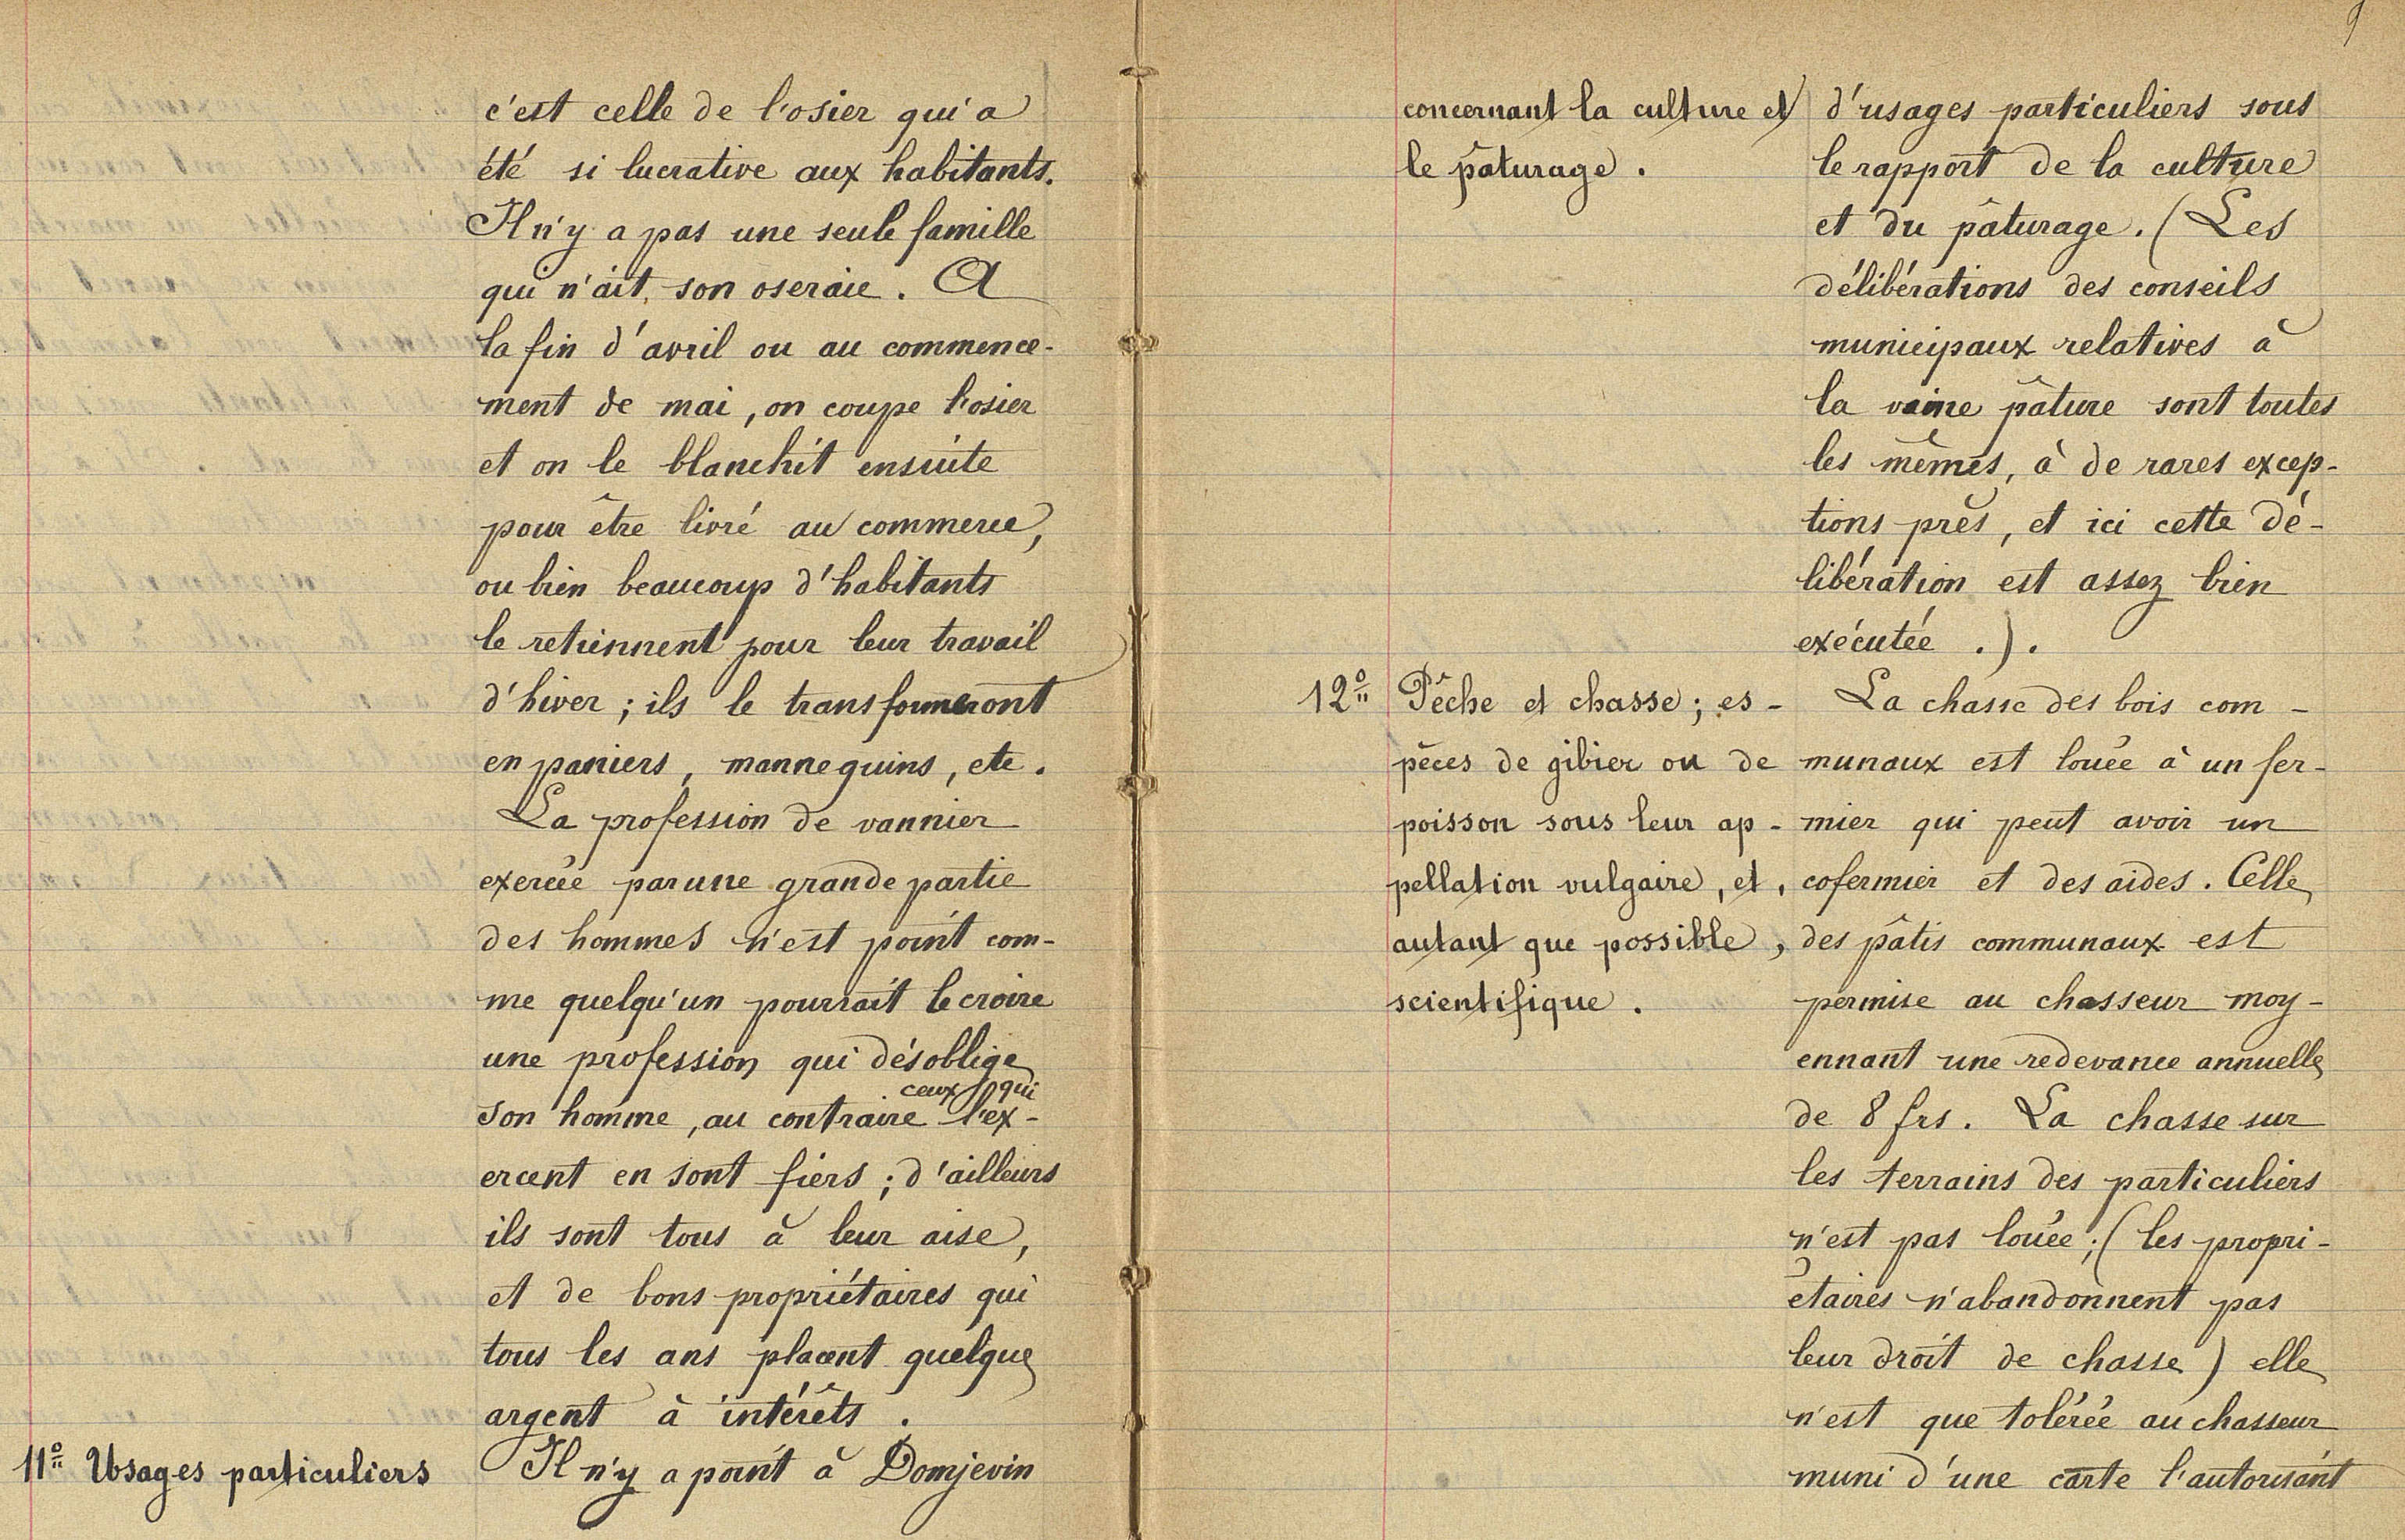 c'est celle de l'osier qui a
été si lucrative aux habitants.
Il n'y a pas une seule famille
qui n'ait son oseraie. A
la fin d'avril ou au commence-
ment de mai, on coupe l'osier
et on le blanchit ensuite
pour être livré au commerce,
ou bien beaucoup d'habitants
le retiennent pour leur travail
d'hiver ; ils le transformeront
en paniers, mannequins, etc.
La profession de vannier
exercée par une grande partie
des hommes n'est point com-
me quelqu'un pourrait le croire
une profession qui désoblige
ceux qui
son homme, au contraire l'ex-
ercent en sont fiers ; d'ailleurs
ils sont tous à leur aise,
et de bons propriétaires qui
tous les ans placent quelque
argent à intérêts.
11° Usages particuliers
Il n'y a point à Domjevin
9
concernant la culture et
le pâturage.
d'usages particuliers sous
le rapport de la culture
et du pâturage. (Les
délibérations des conseils
municipaux relatives à
la vaine pâture sont toutes
les mêmes, à de rares excep-
tions près, et ici cette dé-
libération est assez bien
exécutée.).
12° Pêche et chasse ; es-
pèces de gibier ou de
poisson sous leur ap-
pellation vulgaire, et,
autant que possible,
scientifique.
La chasse des bois com-
munaux est louée à un fer-
mier qui peut avoir un
cofermier et des aides. Celle
des pâtis communaux est
permise au chasseur moy-
ennant une redevance annuelle
de 8 frs. La chasse sur
les terrains des particuliers
n'est pas louée ; (les propri-
étaires n'abandonnent pas
leur droit de chasse) elle
n'est que tolérée au chasseur
muni d'une carte l'autorisant